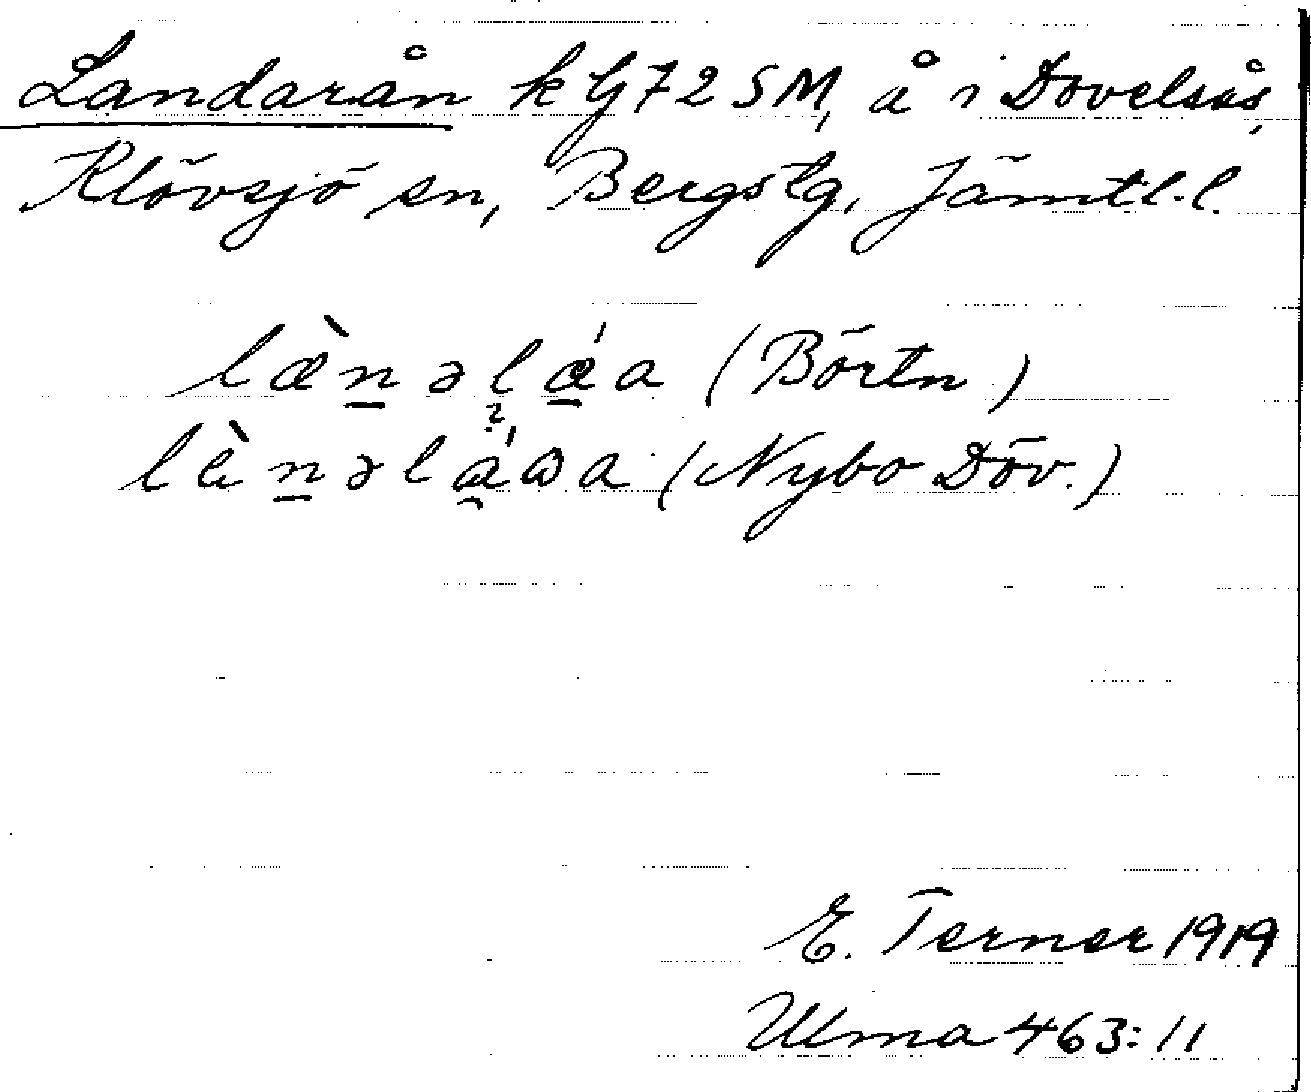 Landarån k Gf 72 SM, å i Dovelsås,
Klövsjö sn, Bergs tg, Jämtl. l.
læ̀n̲əl ǽ̲a (Börtn)
lὲn̲əl á̲ωa (Nybo Döv.)
E. Terner 1919
Ulma 463:11